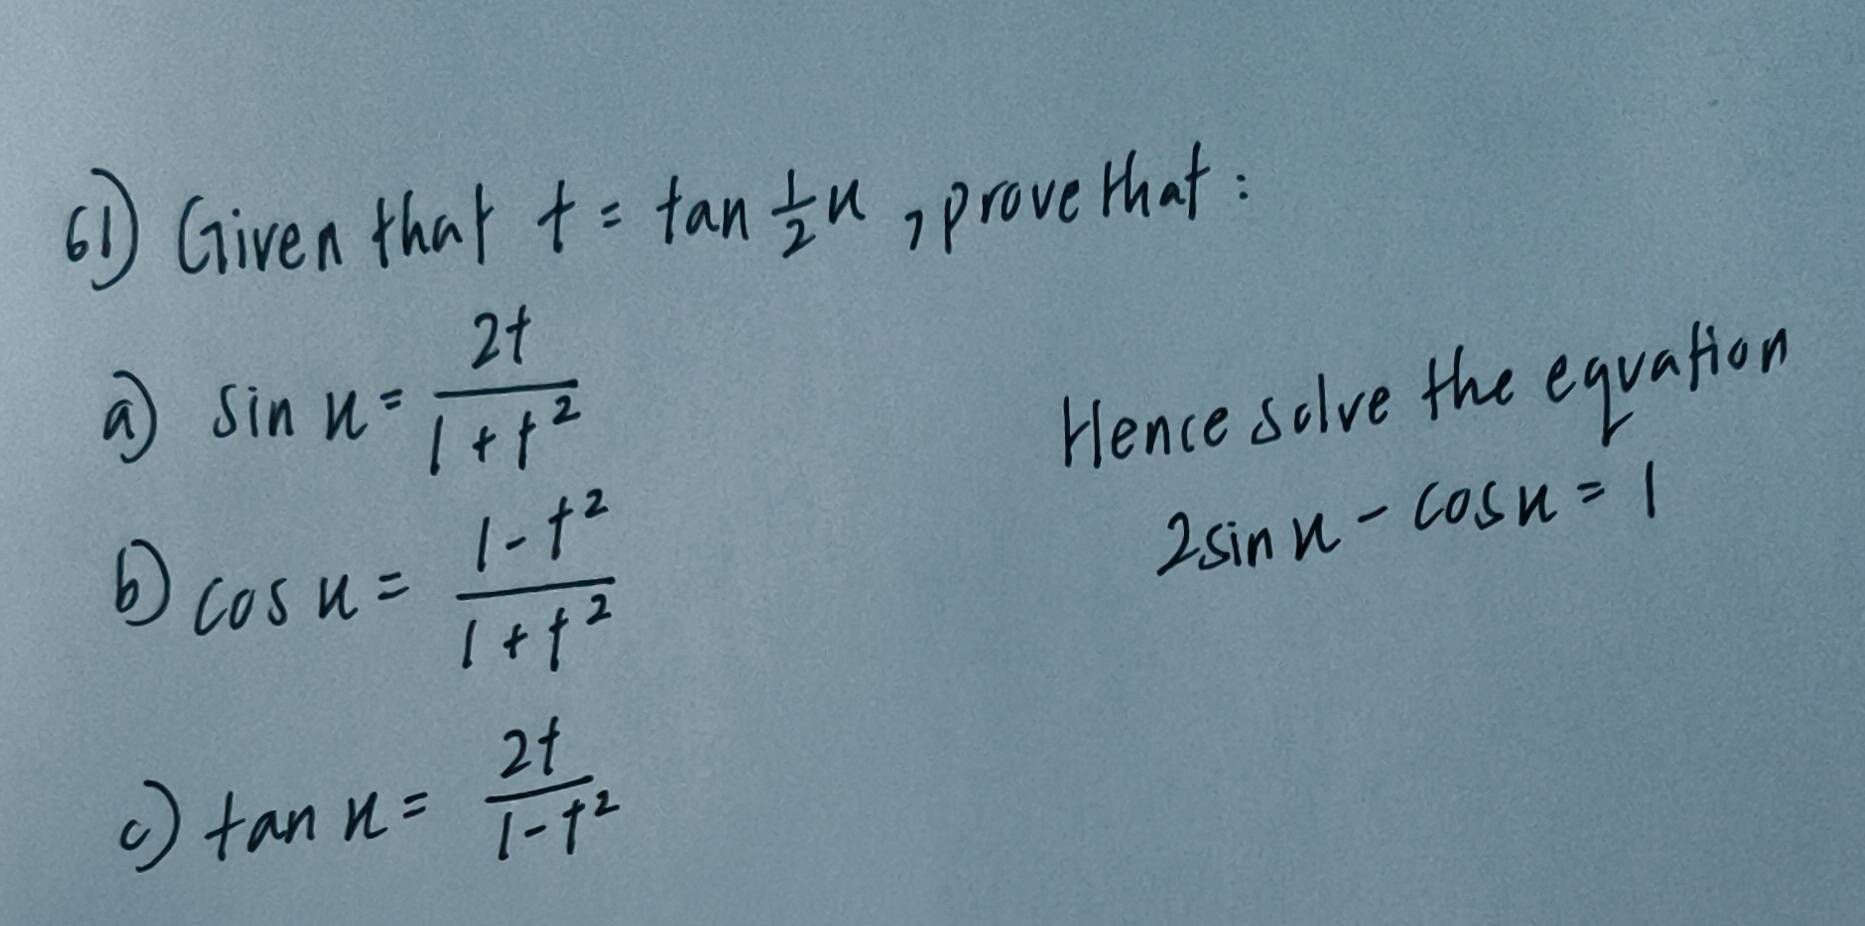 61) Given that t = tan ½x , prove that :
a) sin x = 2t / 1 + t²
b) cos x = 1 - t² / 1 + t²
c) tan x = 2t / 1 - t²
Hence solve the equation
2sin x - cos x = 1